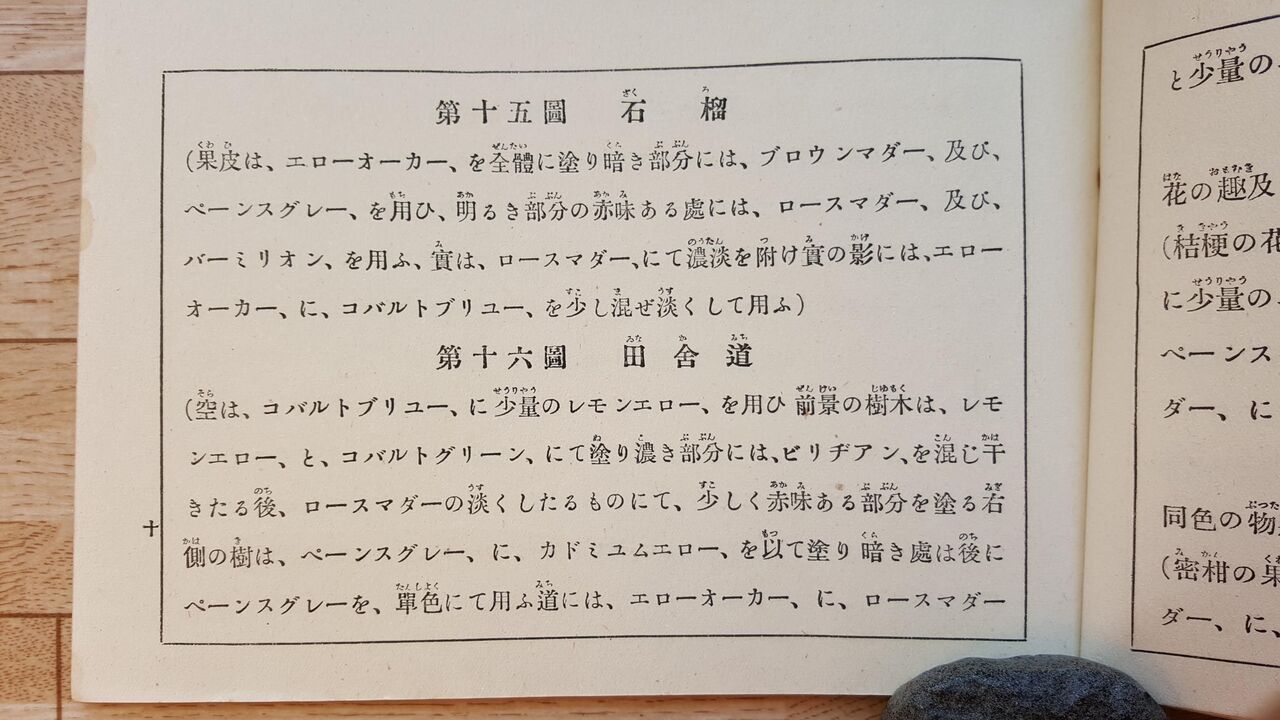 第十五圖 石榴
(果皮は、エローオーカー、を全體に塗り暗き部分には、ブロウンマダー、及び、
ペーンスグレー、を用ひ、明るき部分の赤味ある處には、ロースマダー、及び、
バーミリオン、を用ふ、實は、ロースマダー、にて濃淡を附け實の影には、エロー
オーカー、に、コバルトブリユー、を少し混ぜ淡くして用ふ)
第十六圖 田舍道
(空は、コバルトブリユー、に少量のレモンエロー、を用ひ前景の樹木は、レモ
ンエロー、と、コバルトグリーン、にて塗り濃き部分には、ビリヂアン、を混じ干
きたる後、ロースマダーの淡くしたるものにて、少しく赤味ある部分を塗る右
側の樹は、ペーンスグレー、に、カドミユムエロー、を以て塗り暗き處は後に
ペーンスグレーを、單色にて用ふ道には、エローオーカー、に、ロースマダー
十
と少量の
花の趣及
(桔梗の花
に少量の
ペーンス
ダー、に
同色の物
(密柑の果
ダー、に、